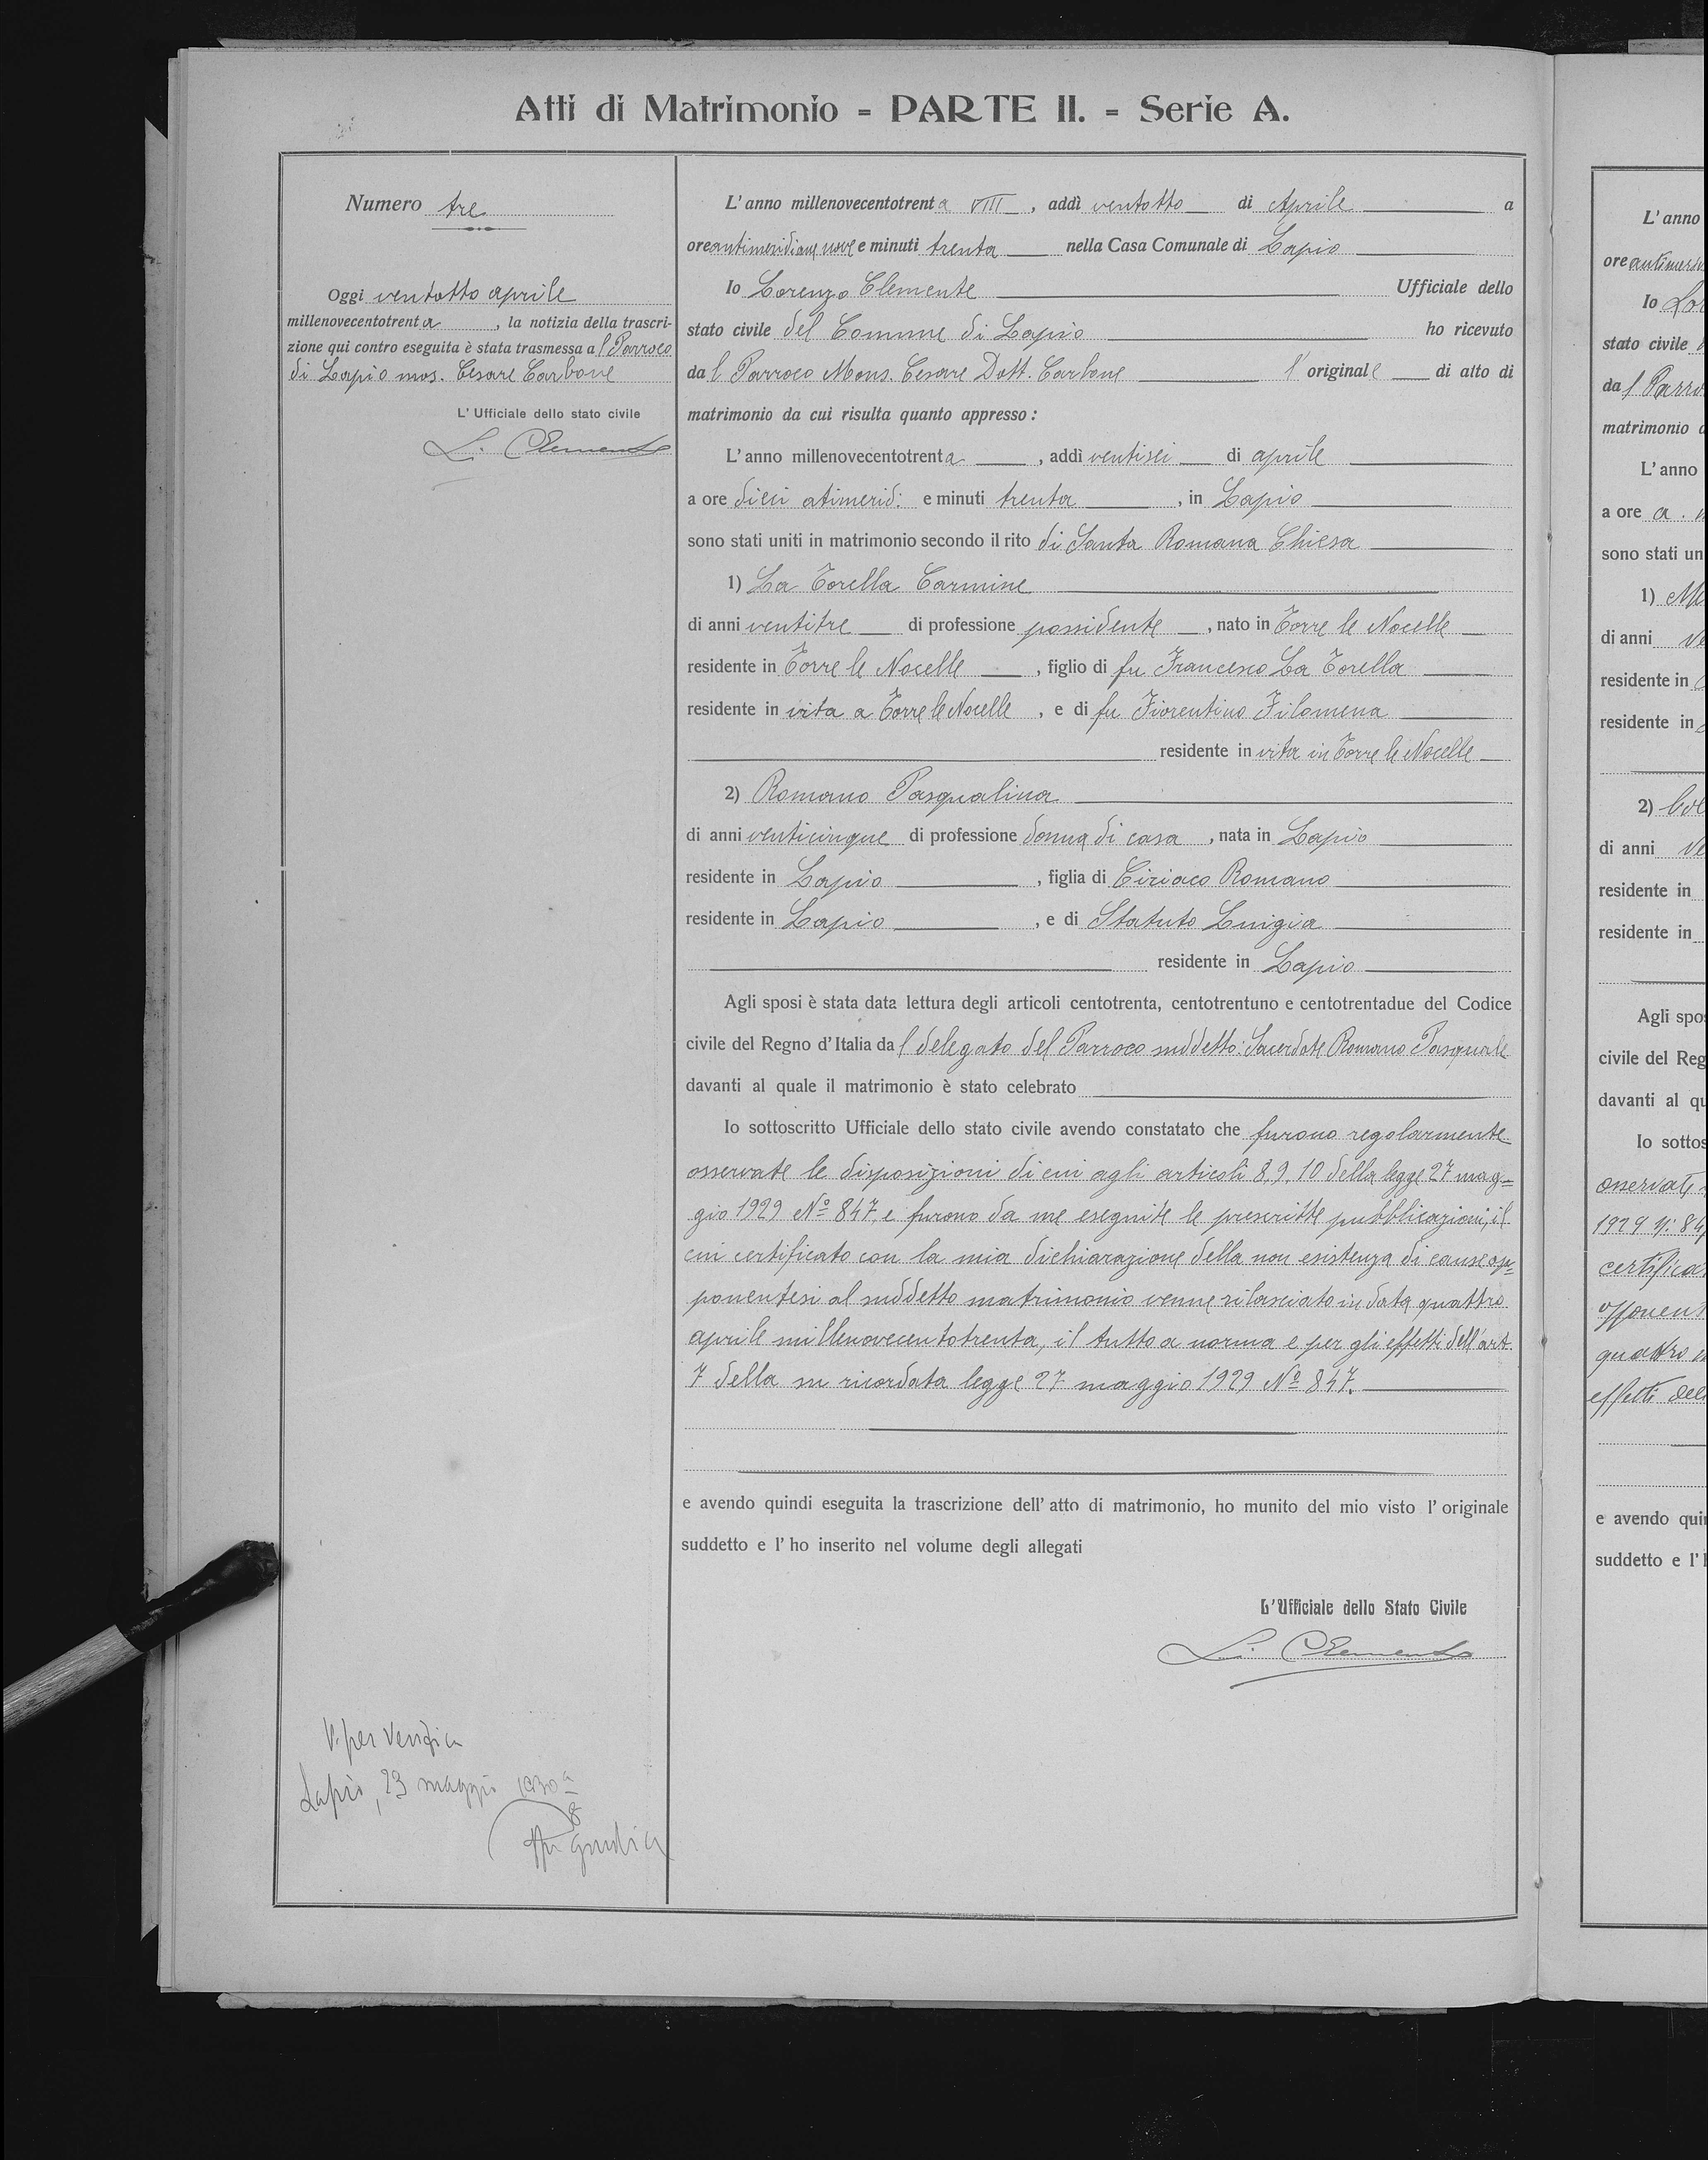 Atti di Matrimonio = PARTE II. = Serie A.
Numero tre
Oggi ventotto aprile
millenovecentotrenta, la notizia della trascri-
zione qui contro eseguita è stata trasmessa al Parroco
di Lapio mos. Cesare Carbone
L' Ufficiale dello stato civile
L. Clemente
V. per verifica
Lapio, 23 maggio 1930 a
8
L' anno millenovecentotrenta VIII, addì ventotto di Aprile a
ore antimeridiane nove e minuti trenta nella Casa Comunale di Lapio
Io Lorenzo Clemente Ufficiale dello
stato civile del Comune di Lapio ho ricevuto
dal Parroco Mons. Cesare Dott. Carbone l' originale di atto di
matrimonio da cui risulta quanto appresso:
L' anno millenovecentotrenta, addì ventisei di aprile
a ore dieci atimerid: e minuti trenta, in Lapio
sono stati uniti in matrimonio secondo il rito di Santa Romana Chiesa
1) La Torella Carmine
di anni ventitre di professione possidente, nato in Torre le Nocelle
residente in Torre le Nocelle, figlio di fu Francesco La Torella
residente in vita a Torre le Nocelle, e di fu Fiorentino Filomena
residente in vita in Torre le Nocelle
2) Romano Pasqualina
di anni venticinque di professione donna di casa, nata in Lapio
residente in Lapio, figlia di Ciriaco Romano
residente in Lapio, e di Statuto Luigia
residente in Lapio
Agli sposi è stata data lettura degli articoli centotrenta, centotrentuno e centotrentadue del Codice
civile del Regno d' Italia dal delegato del Parroco suddetto: Sacerdote Romano Pasquale
davanti al quale il matrimonio è stato celebrato
Io sottoscritto Ufficiale dello stato civile avendo constatato che furono regolarmente
osservate le disposizioni di cui agli articoli 8, 9, 10 della legge 27 mag=
gio 1929 Nº 847, e furono da me eseguite le prescritte pubblicazioni, il
cui certificato con la mia dichiarazione della non esistenza di cause op=
ponentesi al suddetto matrimonio venne rilasciato in data quattro
aprile millenovecentotrenta, il tutto a norma e per gli effetti dell'art.
7 della su ricordata legge 27 maggio 1929 Nº 847.
e avendo quindi eseguita la trascrizione dell' atto di matrimonio, ho munito del mio visto l' originale
suddetto e l' ho inserito nel volume degli allegati
L'Ufficiale dello Stato Civile
L. Clemente
L' anno
ore antimeri
Io Lor
stato civile
da l Parro
matrimonio
L' anno
a ore a.
sono stati un
1)
di anni ve
residente in
residente in
2)
di anni ve
residente in
residente in
Agli spos
civile del Reg
davanti al qu
Io sottos
osservate
1929 n: 84
certifica
opponent
quattro
effetti dell
e avendo quin
suddetto e l'